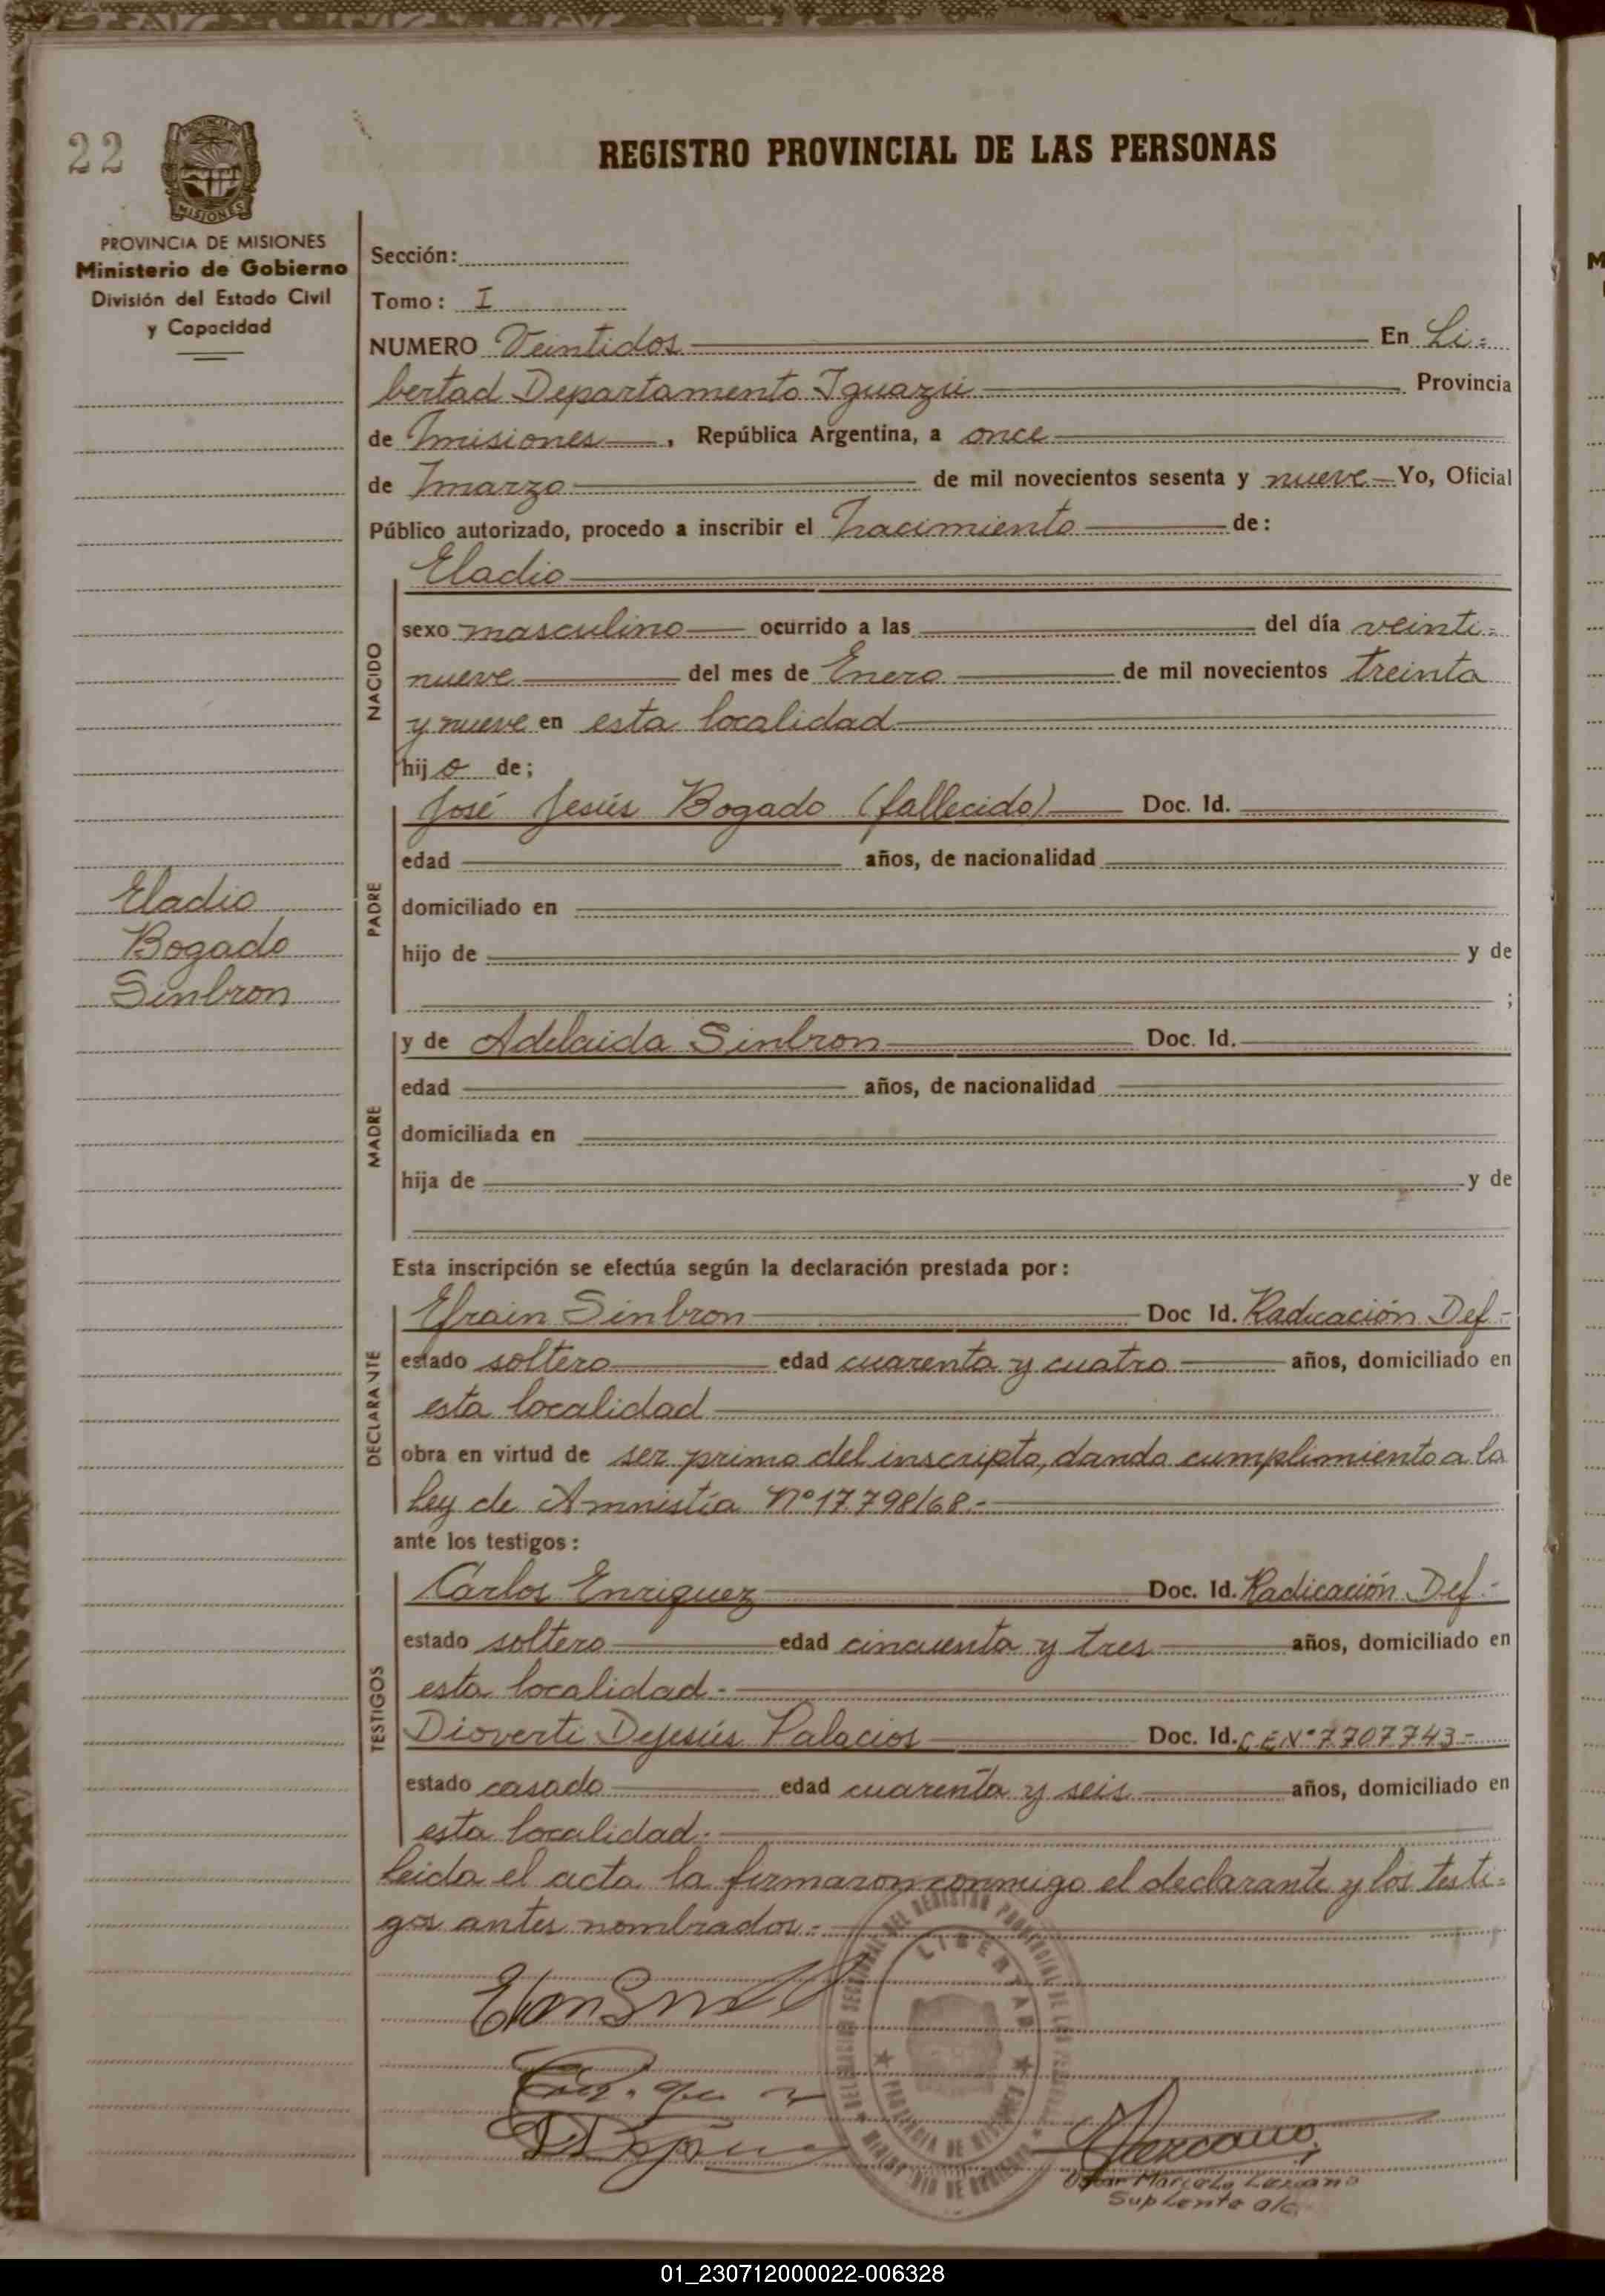 22
MISIONES
REGISTRO PROVINCIAL DE LAS PERSONAS
PROVINCIA DE MISIONES
Ministerio de Gobierno
División del Estado Civil
y Capacidad
Sección:
Tomo: I
NUMERO Veintidos En Li-
bertad Departamento Iguazú Provincia
de Misiones, República Argentina, a once
de Marzo de mil novecientos sesenta y nueve Yo, Oficial
Público autorizado, procedo a inscribir el Nacimiento de:
NACIDO
Eladio
sexo masculino ocurrido a las del día veinti-
nueve del mes de Enero de mil novecientos treinta
y nueve en esta localidad
hijo de;
PADRE
José Jesús Bogado (fallecido) Doc. Id.
edad años, de nacionalidad
domiciliado en
hijo de y de
;
Eladio
Bogado
Sinbron
MADRE
y de Adelaida Sinbron Doc. Id.
edad años, de nacionalidad
domiciliada en
hija de y de
Esta inscripción se efectúa según la declaración prestada por:
DECLARANTE
Efrain Sinbron Doc Id. Radicación Def-
estado soltero edad cuarenta y cuatro años, domiciliado en
esta localidad
obra en virtud de ser primo del inscripto, dando cumplimiento a la
Ley de Amnistía Nº 17.798/68.-
ante los testigos:
TESTIGOS
Carlos Enriquez Doc. Id. Radicación Def.-
estado soltero edad cincuenta y tres años, domiciliado en
esta localidad.-
Dioverti Dejesús Palacios Doc. Id. C.E.Nº 7707743-
estado casado edad cuarenta y seis años, domiciliado en
esta localidad.-
Leida el acta la firmaron conmigo el declarante y los testi-
gos antes nombrados.-
LIBERTAD
PROVINCIA DE MISIONES
Marcelo Lezcano
Suplente a/c.
01_230712000022-006328